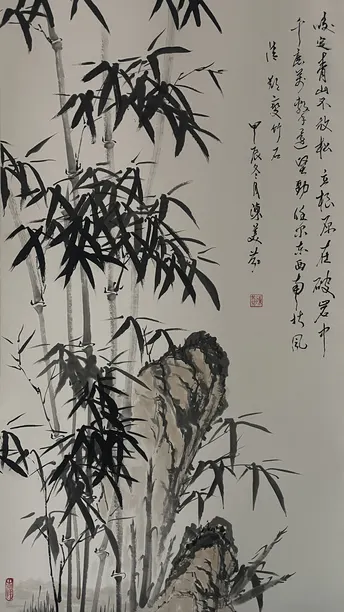 咬定青山不放松立根原在破岩中
千磨萬擊还坚劲任尔东西南北风
清郑燮竹石
甲辰冬月陈美